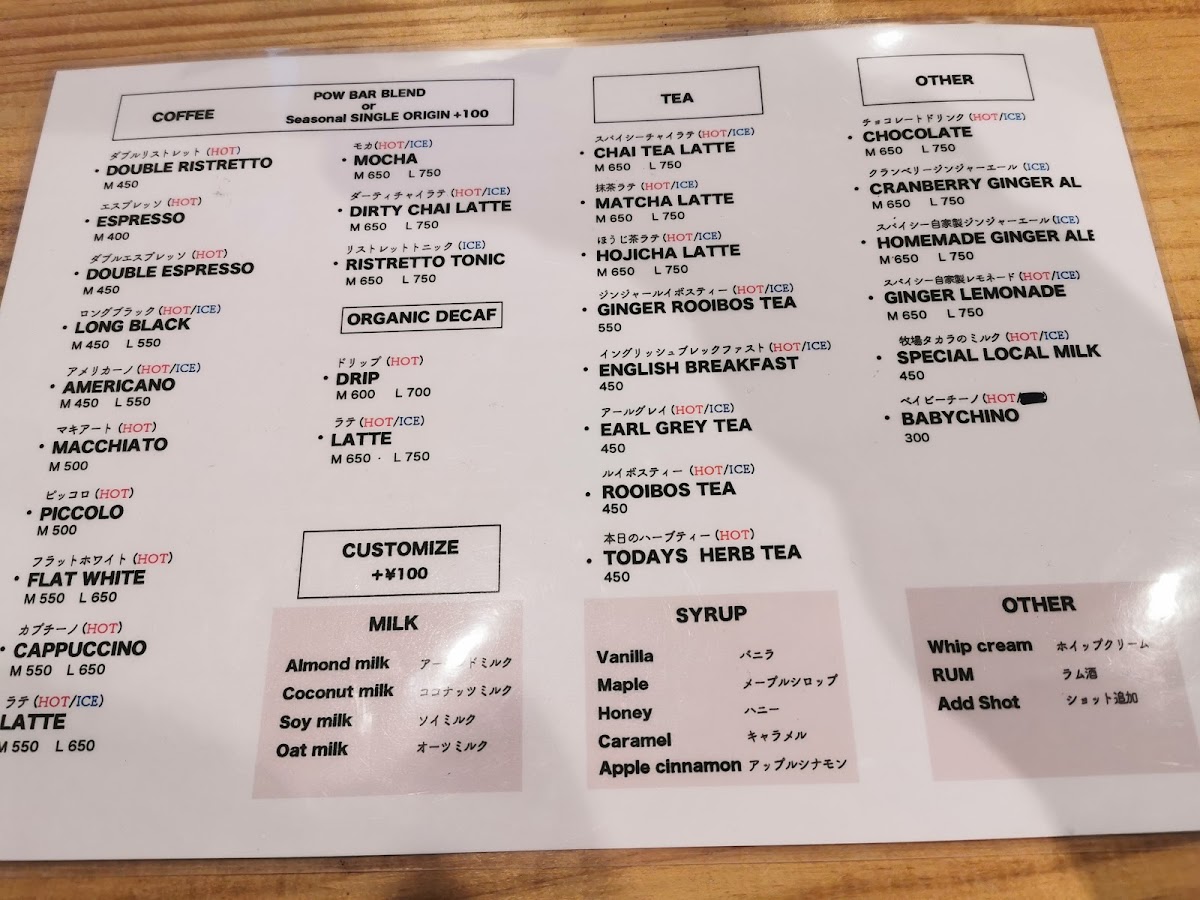 COFFEE
POW BAR BLEND
or
Seasonal SINGLE ORIGIN +100
ダブルリストレット (HOT)
• DOUBLE RISTRETTO
M 450
エスプレッソ (HOT)
• ESPRESSO
M 400
ダブルエスプレッソ (HOT)
• DOUBLE ESPRESSO
M 450
ロングブラック (HOT/ICE)
• LONG BLACK
M 450 L 550
アメリカーノ (HOT/ICE)
• AMERICANO
M 450 L 550
マキアート (HOT)
• MACCHIATO
M 500
ピッコロ (HOT)
• PICCOLO
M 500
フラットホワイト (HOT)
• FLAT WHITE
M 550 L 650
カプチーノ (HOT)
• CAPPUCCINO
M 550 L 650
ラテ (HOT/ICE)
LATTE
M 550 L 650
モカ(HOT/ICE)
• MOCHA
M 650 L 750
ダーティチャイラテ (HOT/ICE)
• DIRTY CHAI LATTE
M 650 L 750
リストレットトニック (ICE)
• RISTRETTO TONIC
M 650 L 750
ORGANIC DECAF
ドリップ (HOT)
• DRIP
M 600 L 700
ラテ (HOT/ICE)
• LATTE
M 650 · L 750
CUSTOMIZE
+¥100
MILK
Almond milk
Coconut milk ココナッツミルク
Soy milk ソイミルク
Oat milk オーツミルク
TEA
スパイシーチャイラテ(HOT/ICE)
• CHAI TEA LATTE
M 650 L 750
抹茶ラテ (HOT/ICE)
• MATCHA LATTE
M 650 L 750
ほうじ茶ラテ (HOT/ICE)
• HOJICHA LATTE
M 650 L 750
ジンジャールイボスティー (HOT/ICE)
• GINGER ROOIBOS TEA
550
イングリッシュブレックファスト (HOT/ICE)
• ENGLISH BREAKFAST
450
アールグレイ (HOT/ICE)
• EARL GREY TEA
450
ルイボスティー (HOT/ICE)
• ROOIBOS TEA
450
本日のハーブティー (HOT)
• TODAYS HERB TEA
450
SYRUP
Vanilla バニラ
Maple メープルシロップ
Honey ハニー
Caramel キャラメル
Apple cinnamon アップルシナモン
OTHER
チョコレートドリンク (HOT/ICE)
• CHOCOLATE
M 650 L 750
クランベリージンジャーエール (ICE)
• CRANBERRY GINGER AL
M 650 L 750
スパイシー自家製ジンジャーエール(ICE)
• HOMEMADE GINGER ALE
M 650 L 750
スパイシー自家製レモネード (HOT/ICE)
• GINGER LEMONADE
M 650 L 750
牧場タカラのミルク (HOT/ICE)
• SPECIAL LOCAL MILK
450
ベイビーチーノ (HOT/
• BABYCHINO
300
OTHER
Whip cream ホイップクリーム
RUM ラム酒
Add Shot ショット追加